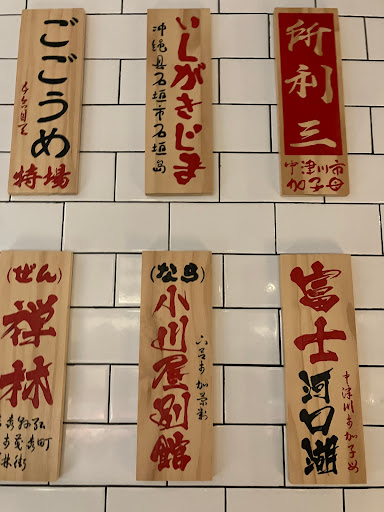 ごごうめ
特場
いしがきじま
沖縄県石垣市石垣島
所利三
中津川市
加子母
(ぜん)
禅林
(なら)
小川屋別館
富士
河口湖
中津川市加子母